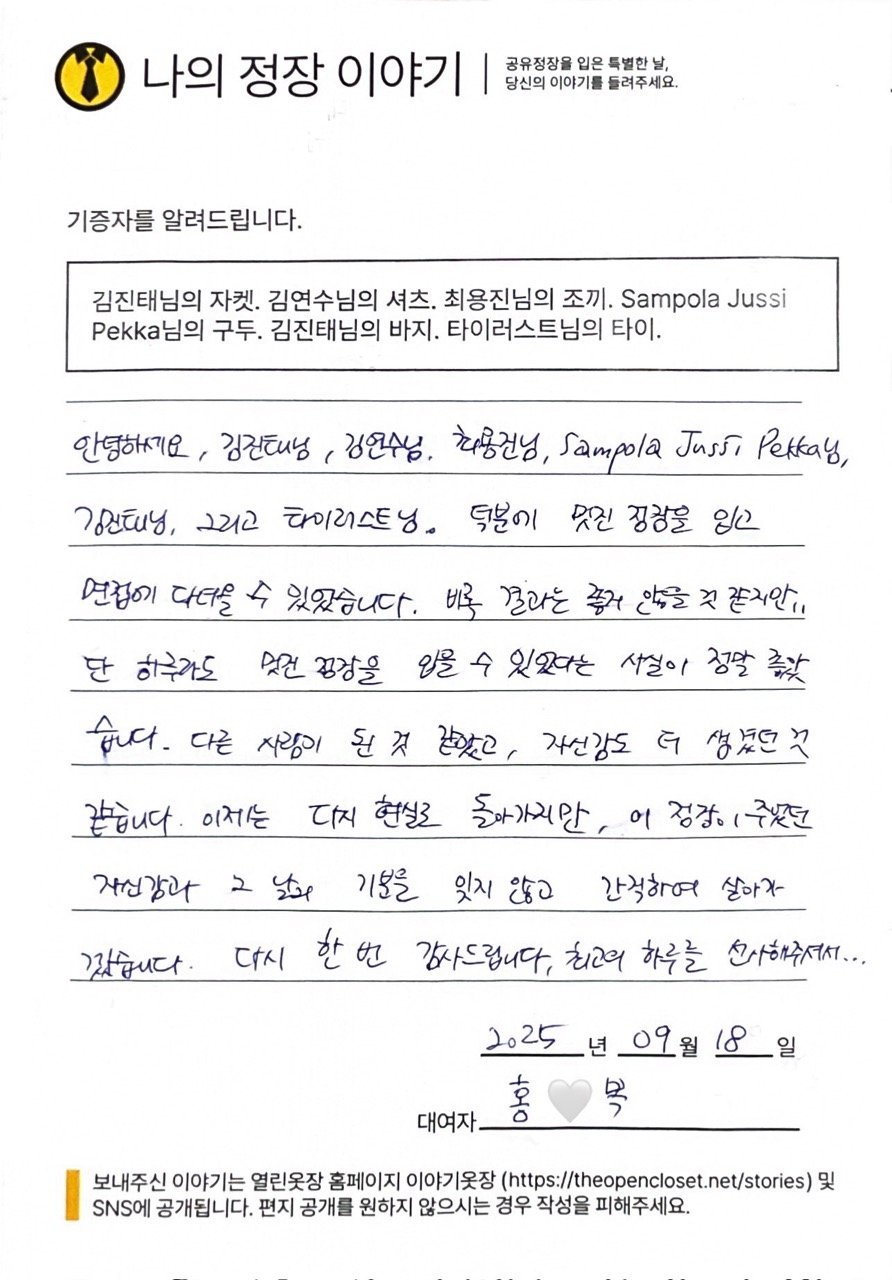 나의 정장 이야기
공유정장을 입은 특별한 날,
당신의 이야기를 들려주세요.
기증자를 알려드립니다.
김진태님의 자켓. 김연수님의 셔츠. 최용진님의 조끼. Sampola Jussi
Pekka님의 구두. 김진태님의 바지. 타이러스트님의 타이.
안녕하세요, 김진태님, 김연수님. 최용진님, Sampola Jussi Pekka님,
김진태님, 그리고 타이러스트님. 덕분에 멋진 정장을 입고
면접에 다녀올 수 있었습니다. 비록 결과는 좋지 않을 것 같지만..
단 하루라도 멋진 정장을 입을 수 있었다는 사실이 정말 좋았
습니다. 다른 사람이 된 것 같았고, 자신감도 더 생겼던 것
같습니다. 이제는 다시 현실로 돌아가지만, 이 정장이 주었던
자신감과 그 날의 기분을 잊지 않고 간직하며 살아가
겠습니다. 다시 한 번 감사드립니다, 최고의 하루를 선사해주셔서...
2025 년 09 월 18 일
대여자 홍 복
보내주신 이야기는 열린옷장 홈페이지 이야기옷장 (https://theopencloset.net/stories) 및
SNS에 공개됩니다. 편지 공개를 원하지 않으시는 경우 작성을 피해주세요.